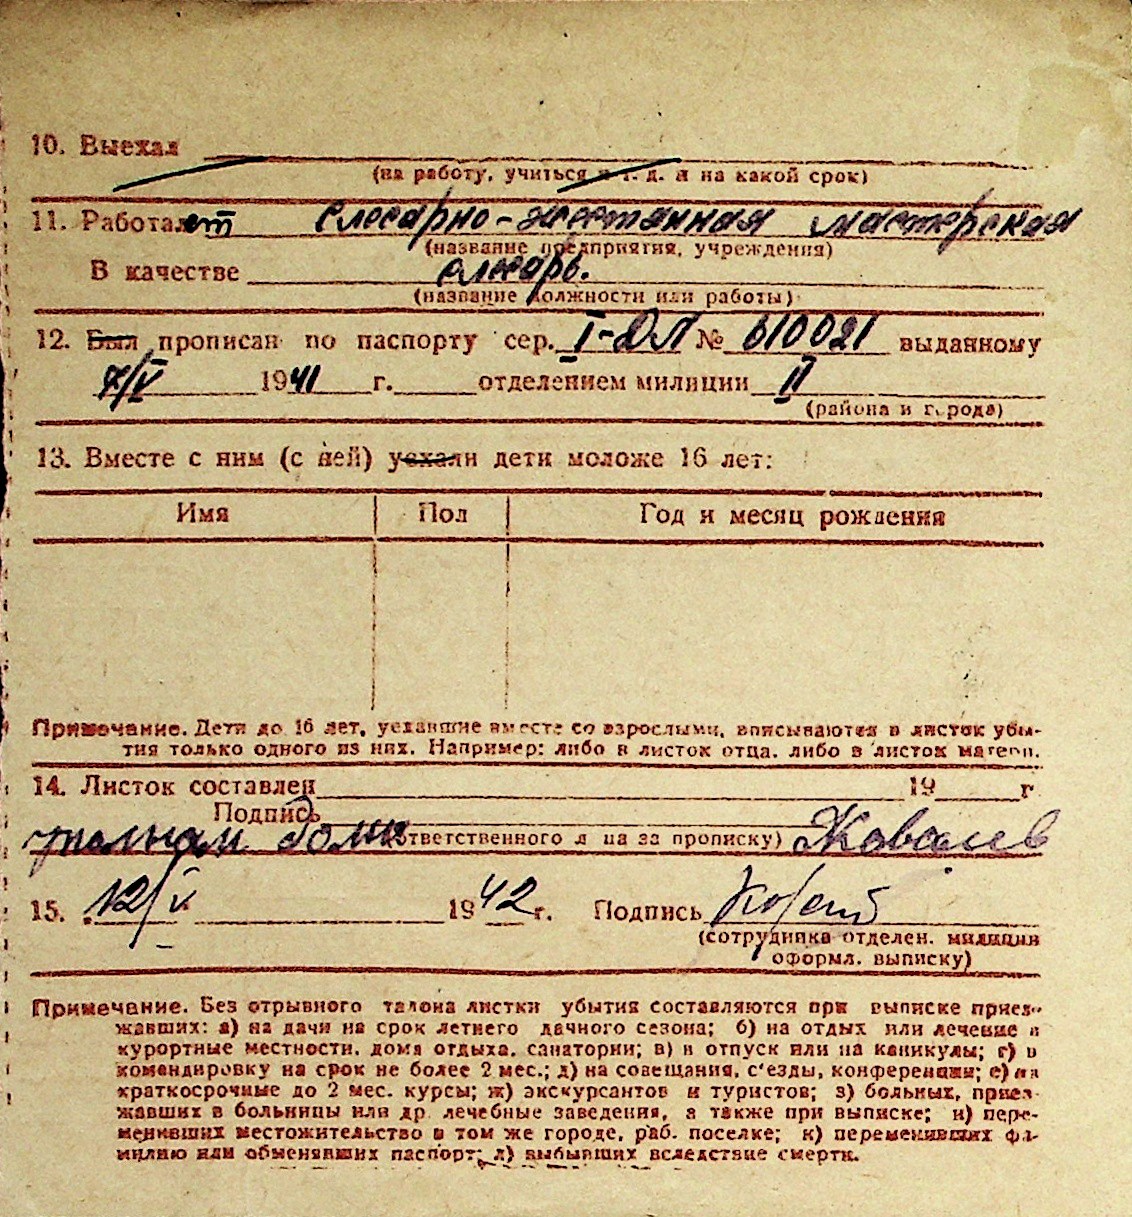 10. Выехал
(на работу, учиться и т. д. и на какой срок)
11. Работает слесарно-жестянная мастерская
(название предприятия, учреждения)
В качестве слесарь.
(название должности или работы)
12. Был прописан по паспорту сер. I-ДЛ № 610021 выданному
7/V 1941 г. отделением милиции II
(района и города)
13. Вместе с ним (с ней) уехали дети моложе 16 лет:
Имя Пол Год и месяц рождения
Примечание. Дети до 16 лет, уехавшие вместе со взрослыми, вписываются в листок убы-
тия только одного из них. Например: либо в листок отца, либо в листок матери.
14. Листок составлен 19 г
Подпись
дома (ответственного лица за прописку) Ковалев
15. 12/V 1942 г. Подпись
(сотрудника отделен. милиции
оформл. выписку)
Примечание. Без отрывного талона листки убытия составляются при выписке приез-
жавших: а) на дачи на срок летнего дачного сезона; б) на отдых или лечение в
курортные местности, дома отдыха, санатории; в) в отпуск или на каникулы; г) в
командировку на срок не более 2 мес.; д) на совещания, с'езды, конференции; е) на
краткосрочные до 2 мес. курсы; ж) экскурсантов и туристов; з) больных, приез-
жавших в больницы или др. лечебные заведения, а также при выписке; и) пере-
менивших местожительство в том же городе, раб. поселке; к) переменивших фа-
милию или обменявших паспорт; л) выбывших вследствие смерти.